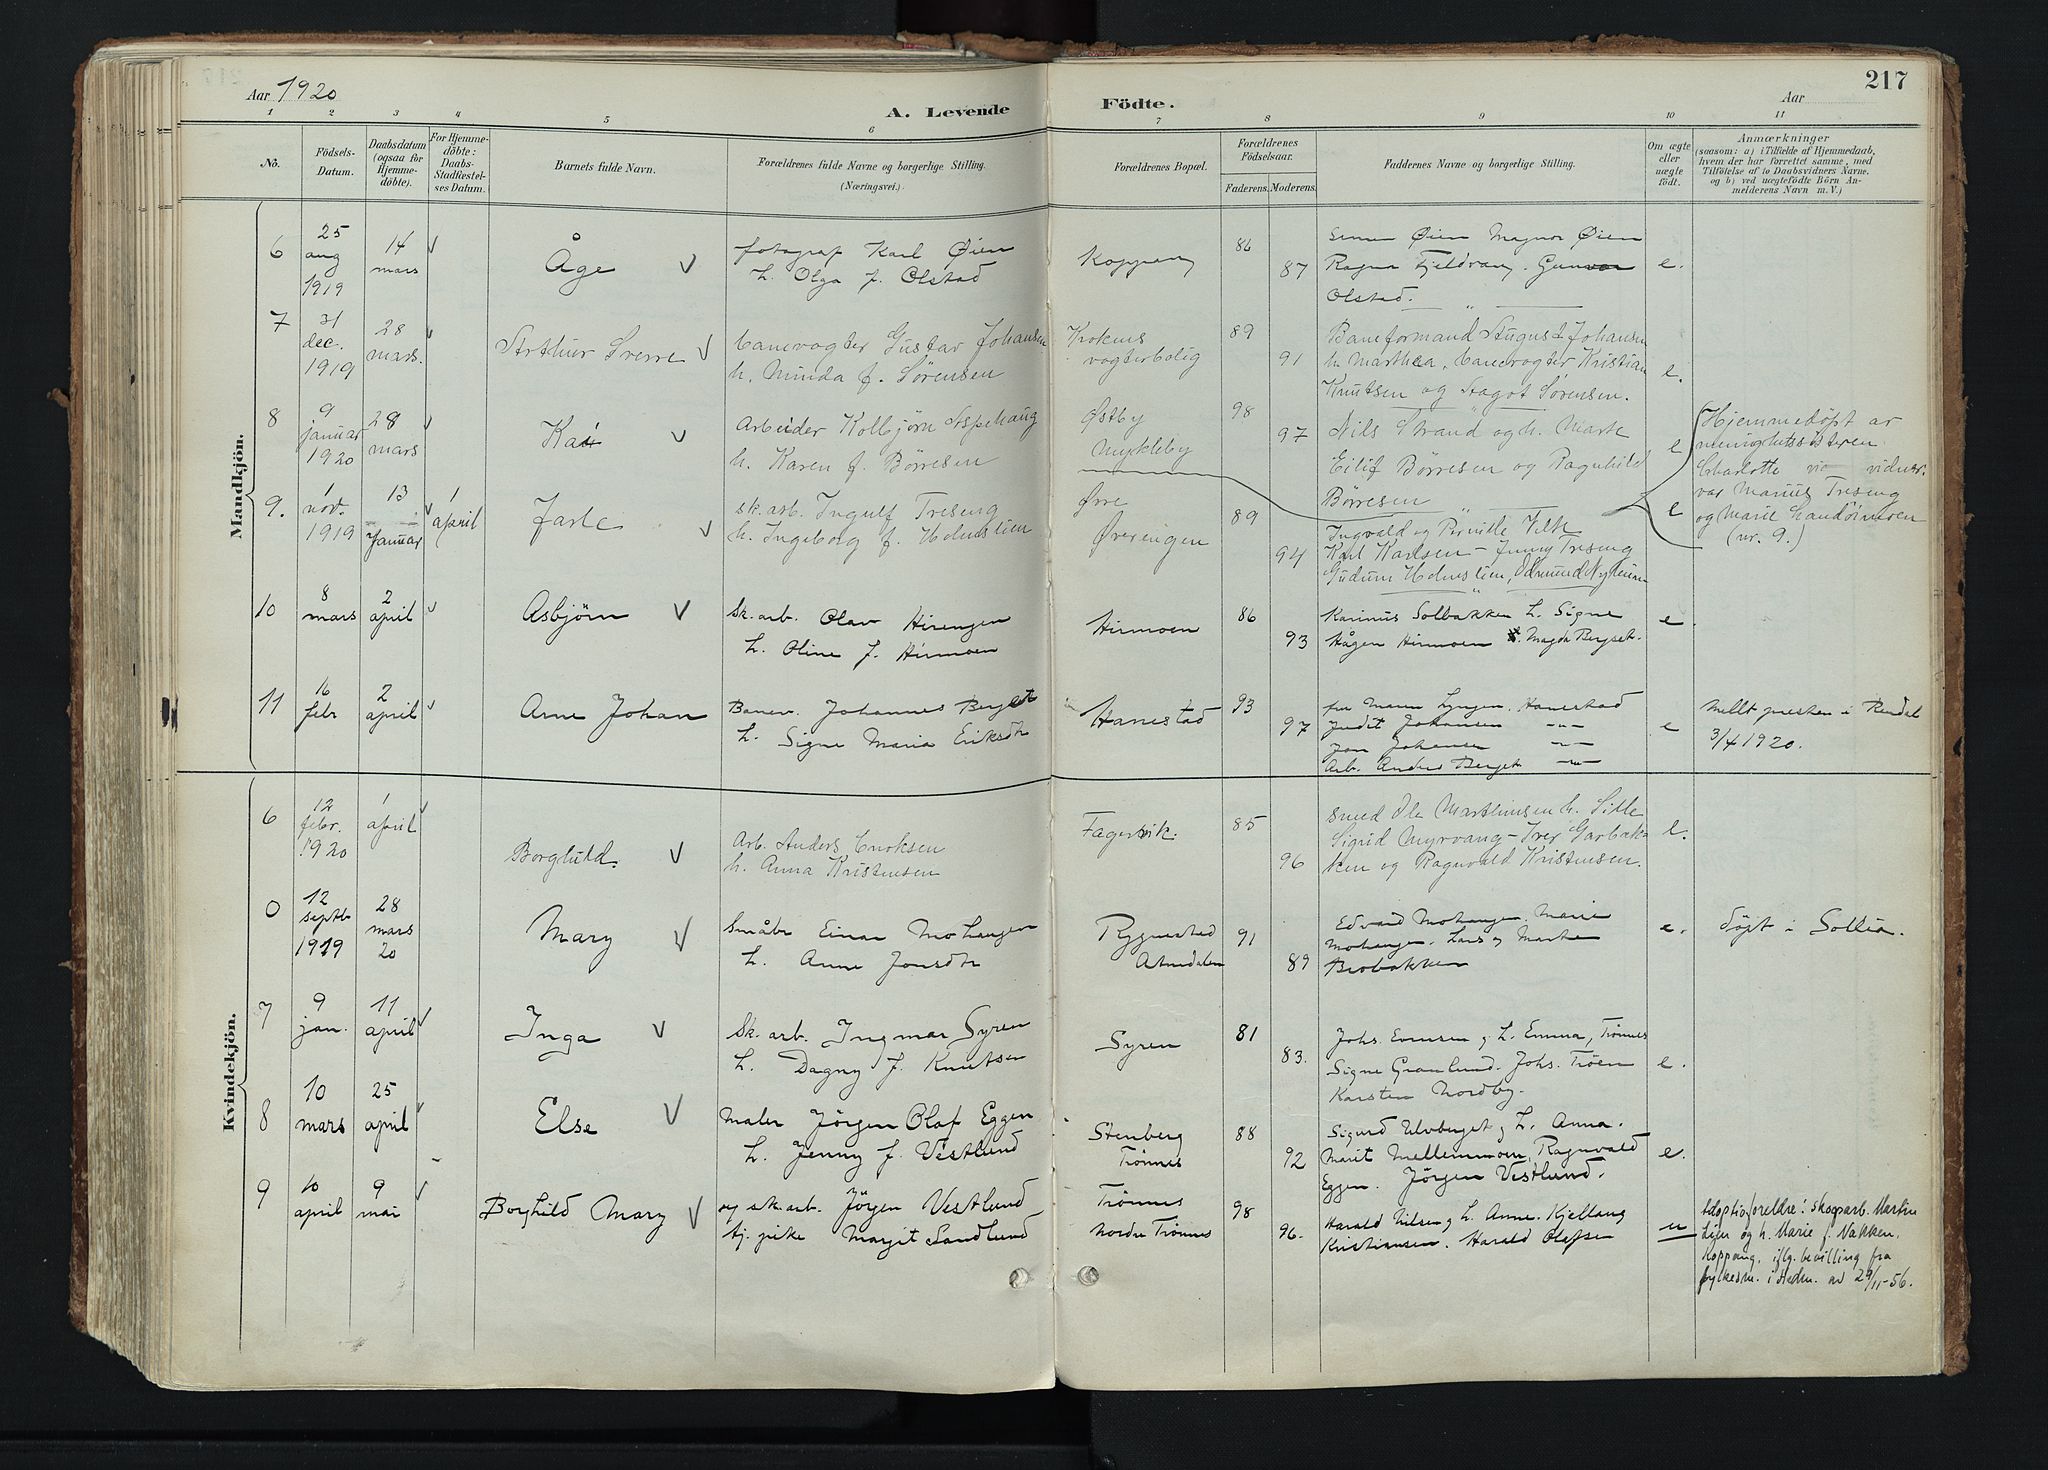 217
Aar 1920
A. Levende Födte.
Aar
1 2 3 4 5 6 7 8 9 10 11
No.
Födsels-Datum.
Daabsdatum (ogsaa for Hjemmedöbte).
For Hjemmedöbte: Daabs-Stadfestelses Datum.
Barnets fulde Navn.
Forældrenes fulde Navne og borgerlige Stilling. (Næringsvei.)
Forældrenes Bopæl.
Forældrenes Födselsaar.
Faderens. Moderens.
Faddernes Navne og borgerlige Stilling.
Om ægte eller uægte födt.
Anmærkninger
(saasom: a) i Tilfælde af Hjemmedaab, hvem der har forrettet samme, med Tilföielse af to Daabsvidners Navne, og b) ved uægtefödte Börn Anmelderens Navn m. V.)
Mandkjön.
6 25 aug 1919 14 mars Åge
fotograf Karl Øien
h. Olga f. Olstad
Koppang 86 87
Simen Øien Magnor Øien
Ragna Fjeldvang. Gunvor
Olstad.
e.
7 31 dec. 1919 28 mars. Arthur Sverre
banevogter Gustav Johansen
h. Minda f. Sørensen
Krokens vogterbolig 89 91
Baneformand August Johansen
h. Marthea, banevogter Kristian
Knutsen og Dagot Sørensen.
e.
8 9 januar 1920 28 mars
Arbeider Kolbjørn Aspehaug
h. Karen f. Børresen
Østby Mykleby 98 97
Nils Strand og h. Marte
Eilif Børresen og Ragnhild
Børresen
e
9. 1 nov. 1919 13 Januar 1 april Jarle
sk.arb. Ingulf Treseng
h. Ingeborg f. Holmstien
Øvre Øverengen 89 94
Ingvald og Pernille Vilk
Karl Karlsen - Jenny Treseng
Gudrun Holmstien,
e
Hjemmedøpt av
menighetssøsteren
Charlotte vidner
var Marius Treseng
og Marie
(nr. 9.)
10 8 mars 2 april Asbjörn
Sk.arb. Olav Hirengen
h. Oline f. Hirmoen
Hirmoen 86 93
Karinus Solbakken h. Signe
Hågen Hirmoen Magda Bergset.
e.
11 16 febr 2 april Arne Johan
Banev. Johannes Berget
h. Signe Maria Eriksdtr
Hanestad 93 97
fru Maren Lyngen, Hanestad
Judit Johansen -"-
Jon Johansen -"-
Arb. Anders Berget -"-
e
Meldt presten i Rendal
3/4 1920.
Kvindekjön.
6 12 febr. 1920 1 april Borghild
Arb. Anders Enoksen
h. Anna Kristensen
Fagervik. 85 96
smed Ole Marthinsen h. Sille
Sigrid Myrvang - Iver Garbakken og Ragnvald Kristensen.
e.
0 12 septb 1919 28 mars 20 Mary
Småbr Einar Mohangen
h. Anne Jonsdtr
Atnedalen 91 89
Edvard Mohangen, Marie
Mohangen. Lars og Marthe
Brobakken
e.
döpt i Sollia.
7 9 jan. 11 april Inga
Sk. arb. Ingmar Syren
h. Dagny f. Knutsen
Syren 81 83.
Johs. Evensen og h. Emma, Trønnes
Signe Granlund. Johs. Trøen
Karsten Nordby.
e.
8 10 mars 25 april Else
maler Jørgen Olaf Eggen
h. Jenny f. Vestlund
Stenberg Trønnes 88 92
Sigurd Ulvberget og h. Anna.
Marit Mellemmoen, Ragnvald
Eggen. Jørgen Vestlund.
e.
9 10 april 9 mai Borghild Mary
og sk.arb. Jörgen Vestlund
tj.pike Margit Sandlund
Trönnes nordre Trönnes 98 96.
Harald Nilsen og h. Anne. Kjellaug
Kristiansen. Harald Olafsen
u
Adoptivforeldre: skogarb. Martin
Lien og h. Marie f. Nakken,
Koppang, iflg. bevilling fra
fylkesm. i Hedm. av 29/11-56.